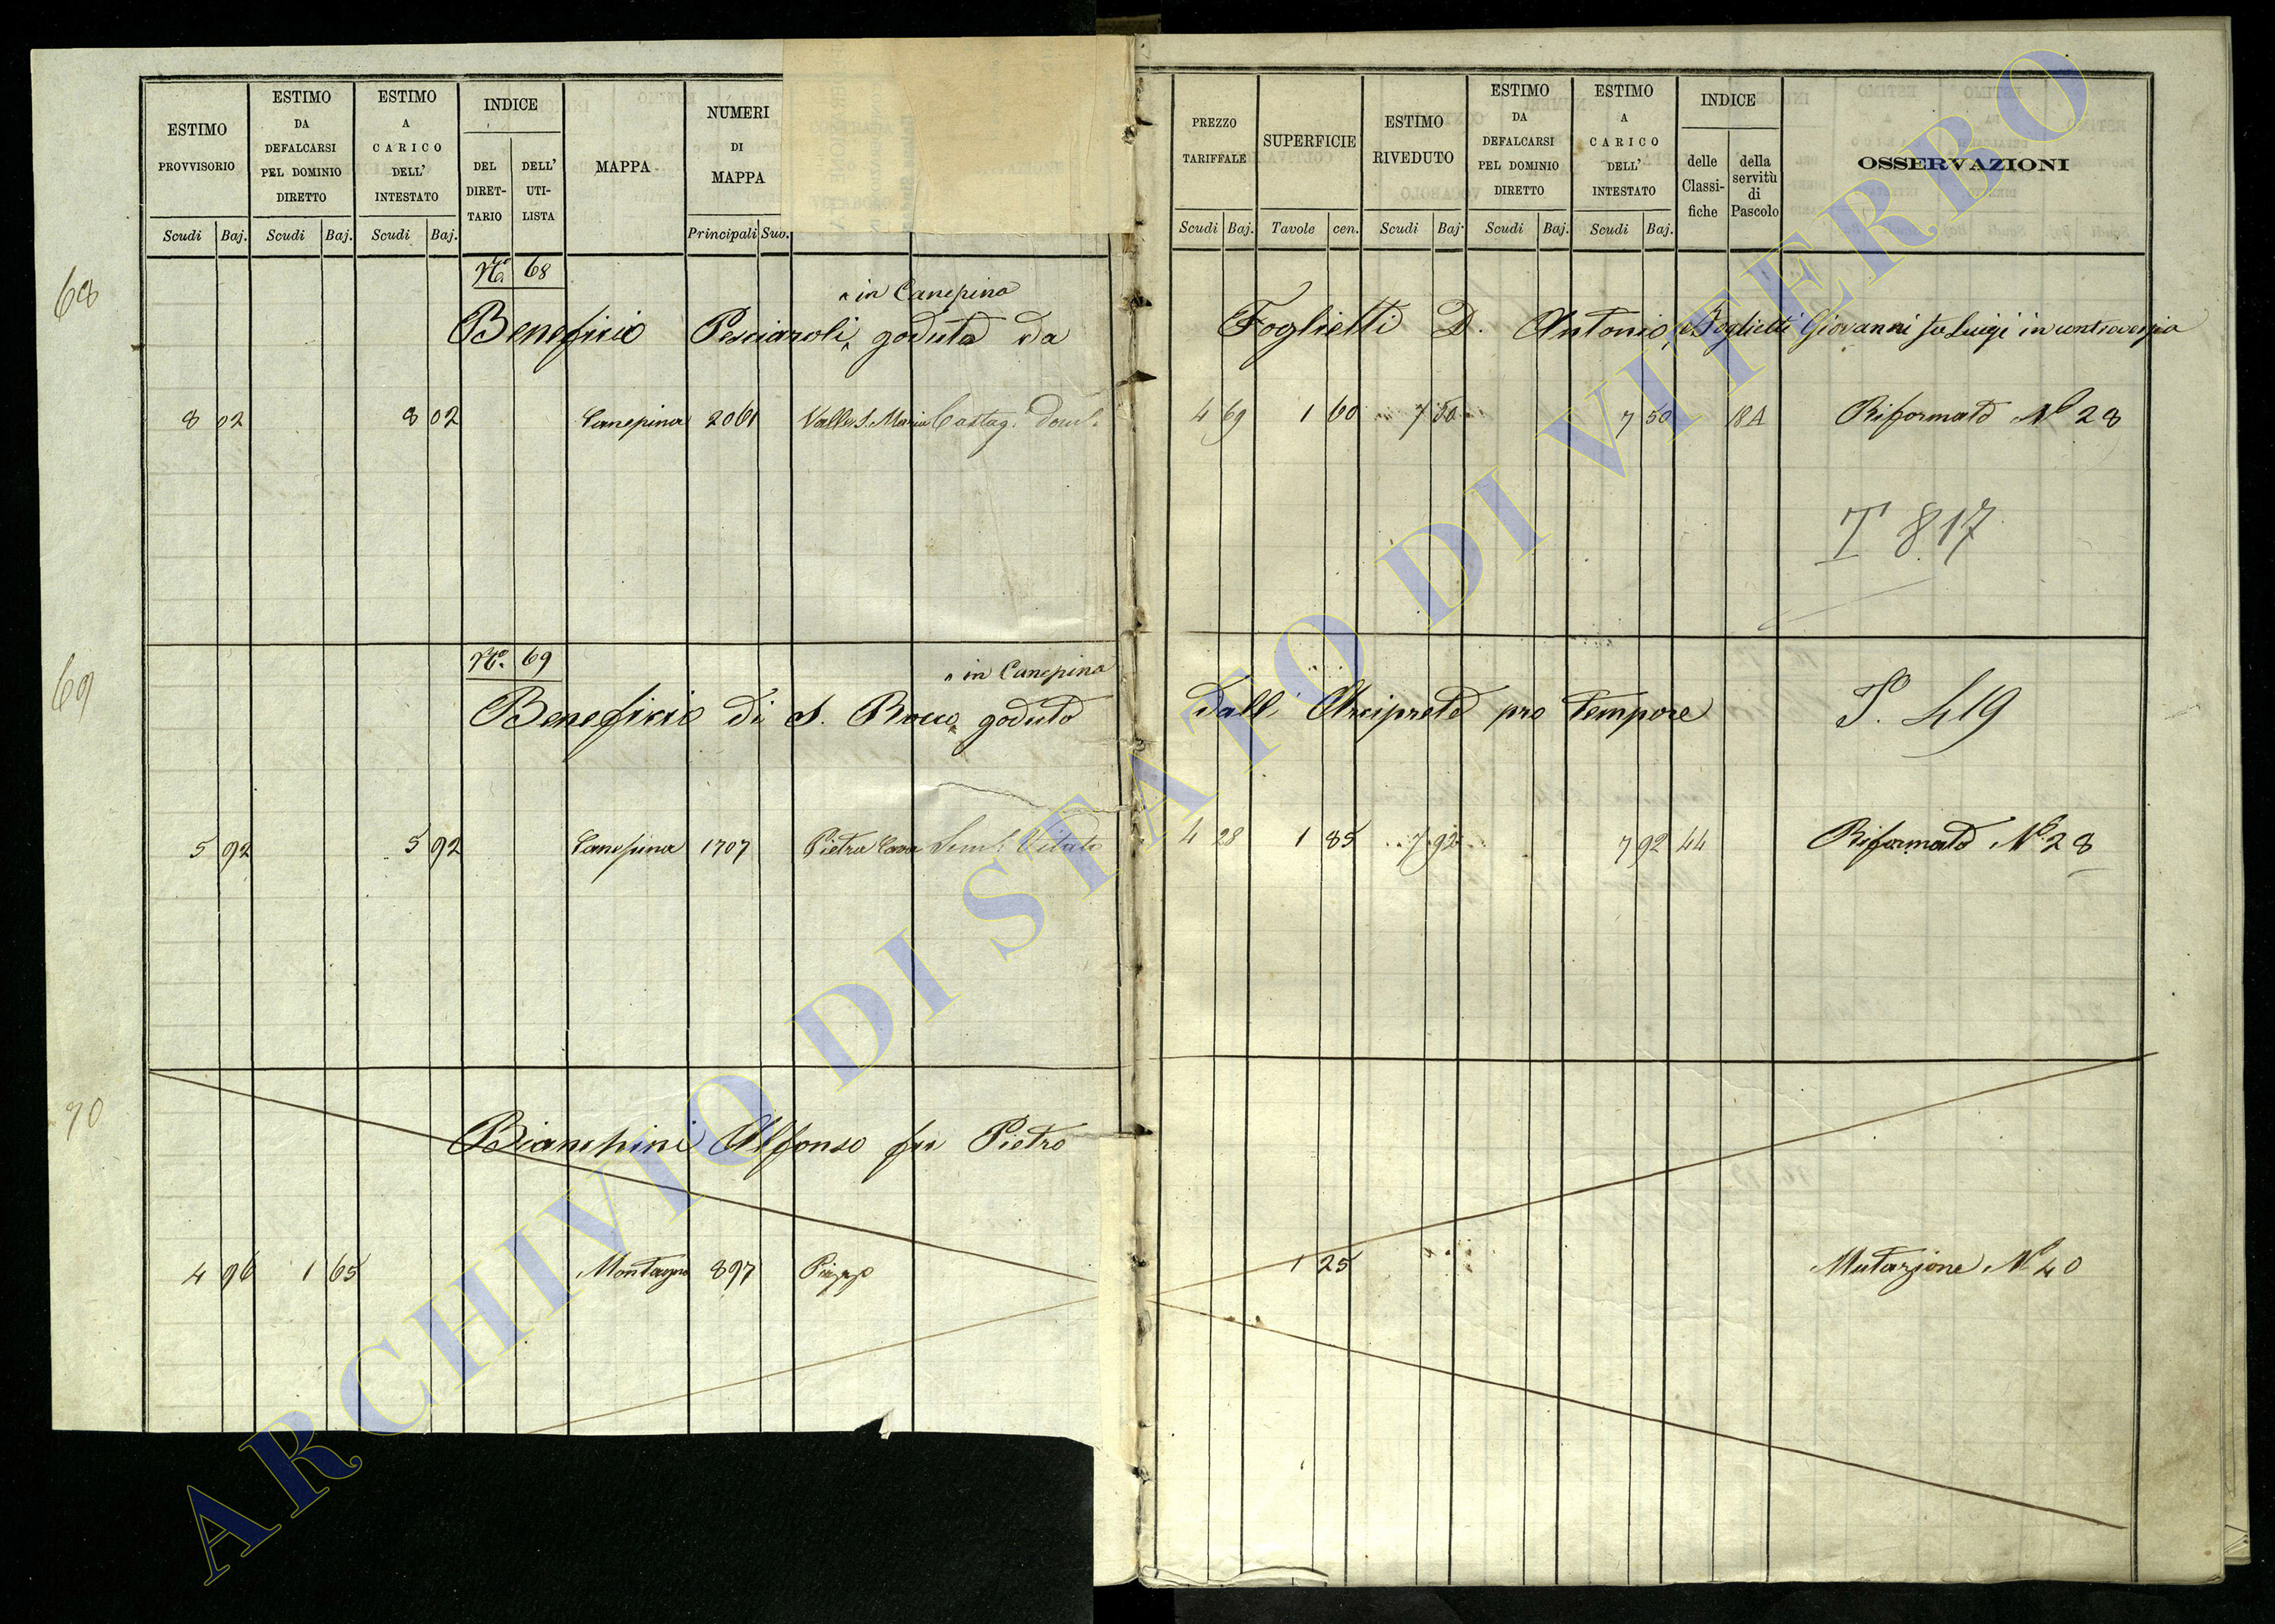 ESTIMO PROVVISORIO
ESTIMO DA DEFALCARSI PEL DOMINIO DIRETTO
ESTIMO A CARICO DELL' INTESTATO
INDICE
DEL DIRET-TARIO
DELL' UTI-LISTA
MAPPA
NUMERI DI MAPPA
PREZZO TARIFFALE
SUPERFICIE
ESTIMO RIVEDUTO
ESTIMO DA DEFALCARSI PEL DOMINIO DIRETTO
ESTIMO A CARICO DELL' INTESTATO
INDICE
delle Classi-fiche
della servitù di Pascolo
OSSERVAZIONI
Scudi Baj. Scudi Baj. Scudi Baj. Principali Sub. Scudi Baj. Tavole cen. Scudi Baj. Scudi Baj. Scudi Baj.
68
No. 68
in Canepina
Beneficio Pesciaroli goduto da Foglietti D. Antonio, Foglietti Giovanni fu Luigi in controversia
8 02 8 02 Canepina 2061 Valle S. Maria Castag. 4 69 1 60 7 50 7 50 18A Riformato No 28
T 817
69
No. 69
in Canepina
Beneficio di S. Rocco goduto dall' Arciprete pro tempore
P. 419
5 92 5 92 Canepina 1707 Pietra Cava Sem. Vitato 4 28 1 85 7 92 7 92 44 Riformato No 28
70
Bianchini Alfonso fu Pietro
4 96 1 65 Montagna 897 1 25 Mutazione No 40
ARCHIVIO DI STATO DI VITERBO